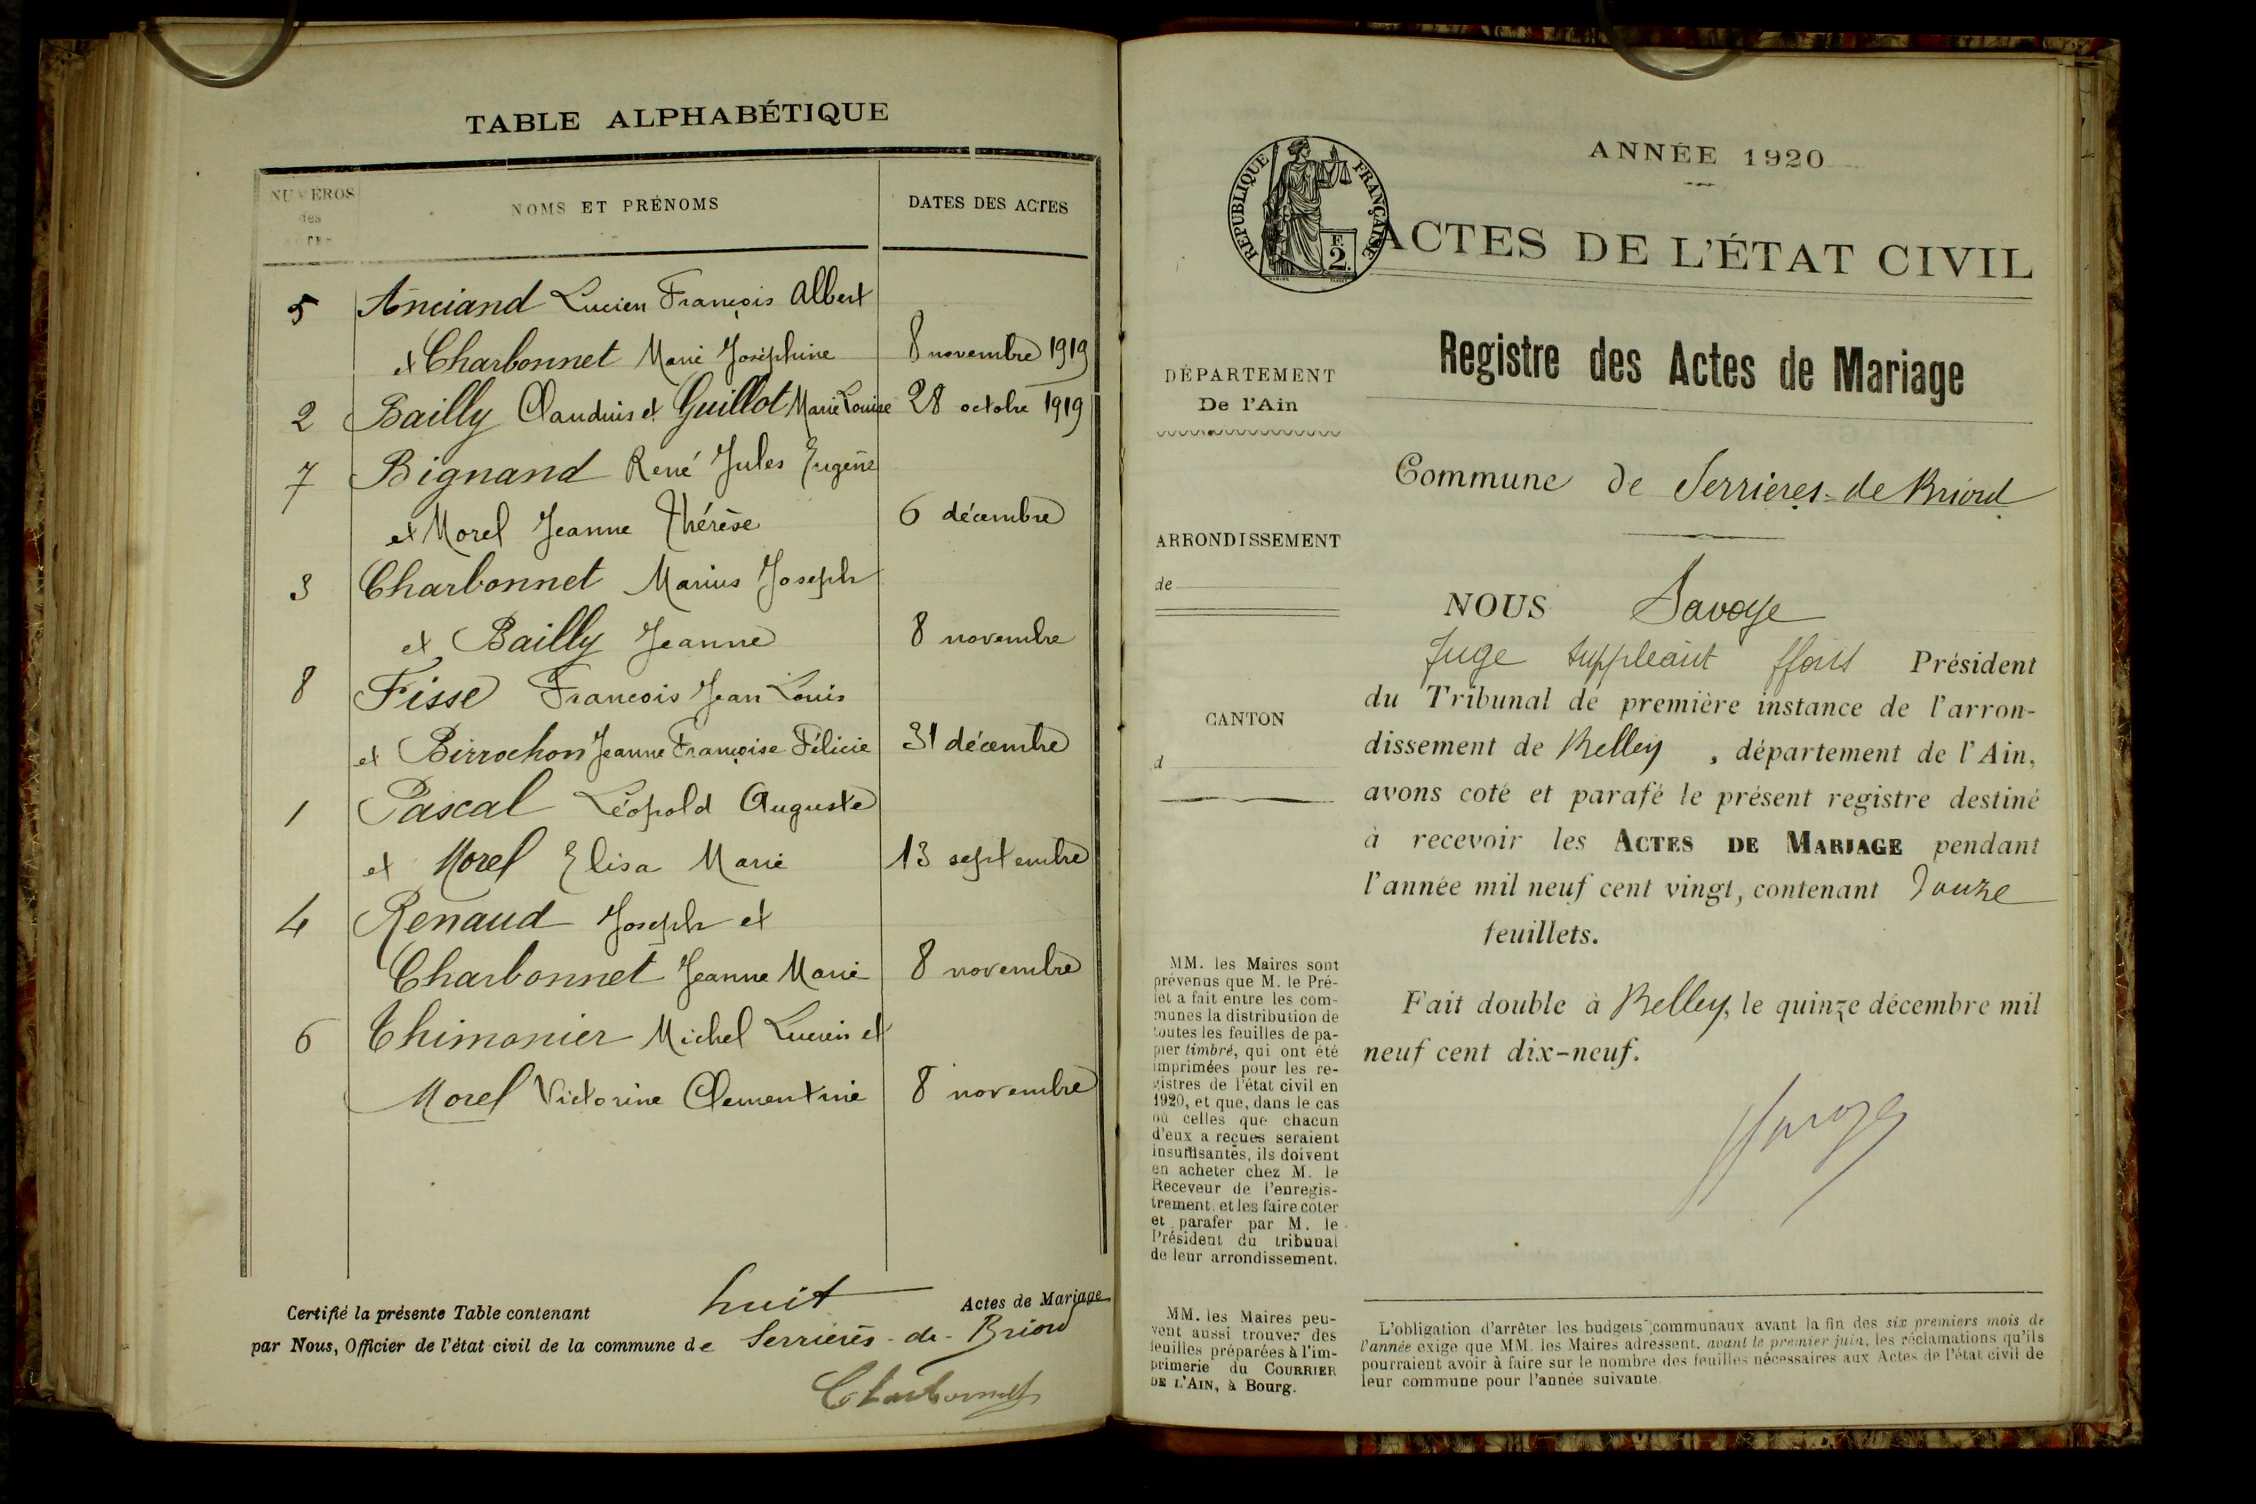 TABLE ALPHABÉTIQUE
NUMÉROS
des
NOMS ET PRÉNOMS
DATES DES ACTES
5 Anciand Lucien François Albert
et Charbonnet Marie Joséphine 8 novembre 1919
2 Bailly Claudius et Guillot Marie Louise 28 octobre 1919
7 Bignand René Jules Eugène
et Morel Jeanne Thérèse 6 décembre
3 Charbonnet Marius Joseph
et Bailly Jeanne 8 novembre
8 Fisse Francois Jean Louis
et Birrochon Jeanne Françoise Félicie 31 décembre
1 Pascal Léopold Auguste
et Morel Elisa Marie 13 septembre
4 Renaud Joseph et
Charbonnet Jeanne Marie 8 novembre
6 Thimonier Michel Lucien et
Morel Victorine Clementine 8 novembre
Certifié la présente Table contenant huit Actes de Mariage
par Nous, Officier de l'état civil de la commune de Serrières-de-Briord
Charbonnet
ANNÉE 1920
RÉPUBLIQUE FRANÇAISE
F.
2
ACTES DE L'ÉTAT CIVIL
Registre des Actes de Mariage
DÉPARTEMENT
De l'Ain
Commune de Serrieres-de Briord
ARRONDISSEMENT
de
CANTON
d
NOUS Savoye
Juge suppléant ffons Président
du Tribunal de première instance de l'arron-
dissement de Belley, département de l'Ain,
avons coté et parafé le présent registre destiné
à recevoir les ACTES DE MARIAGE pendant
l'année mil neuf cent vingt, contenant douze
feuillets.
Fait double à Belley, le quinze décembre mil
neuf cent dix-neuf.
Savoye
MM. les Maires sont
prévenus que M. le Pré-
fet a fait entre les com-
munes la distribution de
toutes les feuilles de pa-
pier timbré, qui ont été
imprimées pour les re-
gistres de l'état civil en
1920, et que, dans le cas
où celles que chacun
d'eux a reçues seraient
insuffisantes, ils doivent
en acheter chez M. le
Receveur de l'enregis-
trement, et les faire coter
et parafer par M. le
Président du tribunal
de leur arrondissement.
MM. les Maires peu-
vent aussi trouver des
feuilles préparées à l'im-
primerie du COURRIER
DE L'AIN, à Bourg.
L'obligation d'arrêter les budgets communaux avant la fin des six premiers mois de
l'année exige que MM. les Maires adressent, avant le premier juin, les réclamations qu'ils
pourraient avoir à faire sur le nombre des feuilles nécessaires aux Actes de l'état civil de
leur commune pour l'année suivante.